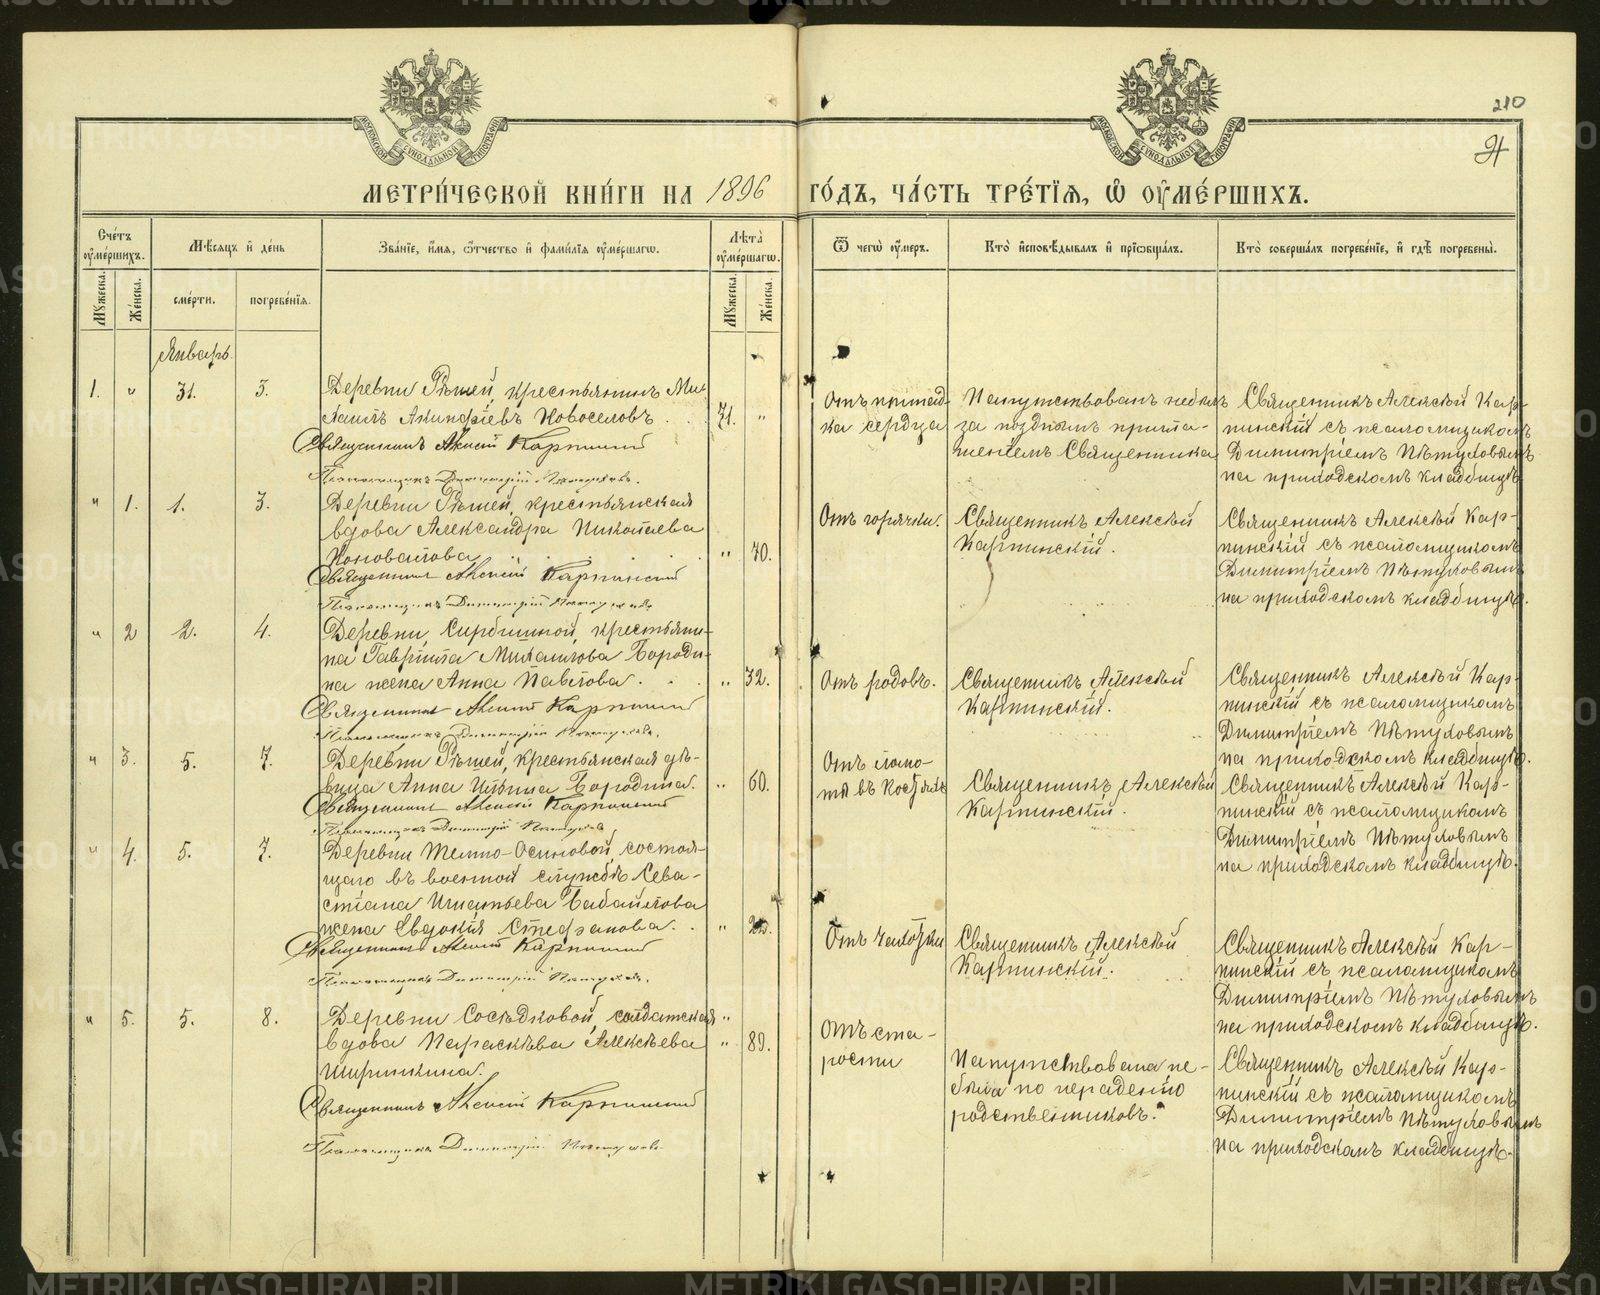 210
МОСКОВСКОЙ СѴНОДАЛЬНОЙ ТИПОГРАФІИ
МОСКОВСКОЙ СѴНОДАЛЬНОЙ ТИПОГРАФІИ
МЕТРИ́ЧЕСКОЙ КНИ́ГИ НА 1896 ГО́ДЪ, ЧА́СТЬ ТРЕ́ТІЯ, Ѽ ОУМЕ́РШИХЪ.
Сче́тъ оуме́ршихъ.
Мꙋжеска.
Же́нска.
Мѣ́сяцъ и де́нь
сме́рти.
погребе́нія.
Зва́ніе, и́мя, ѻ́тчество и фами́лія оуме́ршагѡ.
Лѣта̀ оуме́ршагѡ.
Мꙋжеска.
Же́нска.
Ѿ чегѡ̀ оу́меръ.
Кто̀ исповѣ́дывалъ и прїѡбща́лъ.
Кто̀ соверша́лъ погребе́ніе, и гдѣ̀ погребены̀.
Январь.
1. " 31. 3.
Деревни Рѣшей, крестьянинъ Ми-
хаилъ Акинфіевъ Новоселовъ . . . 71. "
Священникъ Алексій Карпинскій
Псаломщикъ Димитрій Пѣтуховъ.
Отъ припад-
ка сердца
Напутствованъ небылъ
за позднымъ пригла-
шеніемъ Священника
Священникъ Алексѣй Кар-
пинскій съ псаломщикомъ
Димитріемъ Пѣтуховымъ
на приходскомъ кладбищѣ
" 1. 1. 3.
Деревни Рѣшей, крестьянская
вдова Александра Николаева
Коновалова " 70.
Священникъ Алексій Карпинскій
Псаломщикъ Димитрій Пѣтуховъ
Отъ горячки.
Священникъ Алексѣй
Карпинскій.
Священникъ Алексѣй Кар-
пинскій съ псаломщикомъ
Димитріемъ Пѣтуховымъ
на приходскомъ кладбищѣ.
" 2 2. 4.
Деревни, крестьяни-
на Гавріила Михаилова Бороди-
на жена Анна Павлова. . . " 32.
Священникъ Алексій Карпинскій
Псаломщикъ Димитрій Пѣтуховъ.
Отъ родовъ.
Священникъ Алексѣй
Карпинскій.
Священникъ Алексѣй Кар-
пинскій съ псаломщикомъ
Димитріемъ Пѣтуховымъ
на приходскомъ кладбищѣ.
" 3. 5. 7.
Деревни Рѣшей, крестьянская дѣ-
вица Анна Ильина Бородина. " 60.
Священникъ Алексій Карпинскій
Псаломщикъ Димитрій Пѣтуховъ
Отъ ломо-
ты въ костяхъ
Священникъ Алексѣй
Карпинскій.
Священникъ Алексѣй Кар-
пинскій съ псаломщикомъ
Димитріемъ Пѣтуховымъ
на приходскомъ кладбищѣ.
" 4. 5. 7.
Деревни Темно-Осиновой, состоя-
щаго въ военной службѣ Сева-
стіана Игнатьева Бабайлова
жена Евдокія Стефанова. . "
Священникъ Алексій Карпинскій
Псаломщикъ Димитрій Пѣтуховъ.
Отъ чахотки
Священникъ Алексѣй
Карпинскій.
Священникъ Алексѣй Кар-
пинскій съ псаломщикомъ
Димитріемъ Пѣтуховымъ
на приходскомъ кладбищѣ.
" 5. 5. 8.
Деревни Сосѣдковой, солдатская "
вдова Параскѣва Алексѣева " 89.
Ширинкина.
Священникъ Алексій Карпинскій
Псаломщикъ Димитрій Пѣтуховъ
Отъ ста-
рости
Напутствована не-
была по нерадѣнію
родственниковъ.
Священникъ Алексѣй Кар-
пинскій съ псаломщикомъ
Димитріемъ Пѣтуховымъ
на приходскомъ кладбищѣ.
METRIKI.GASO-URAL.RU